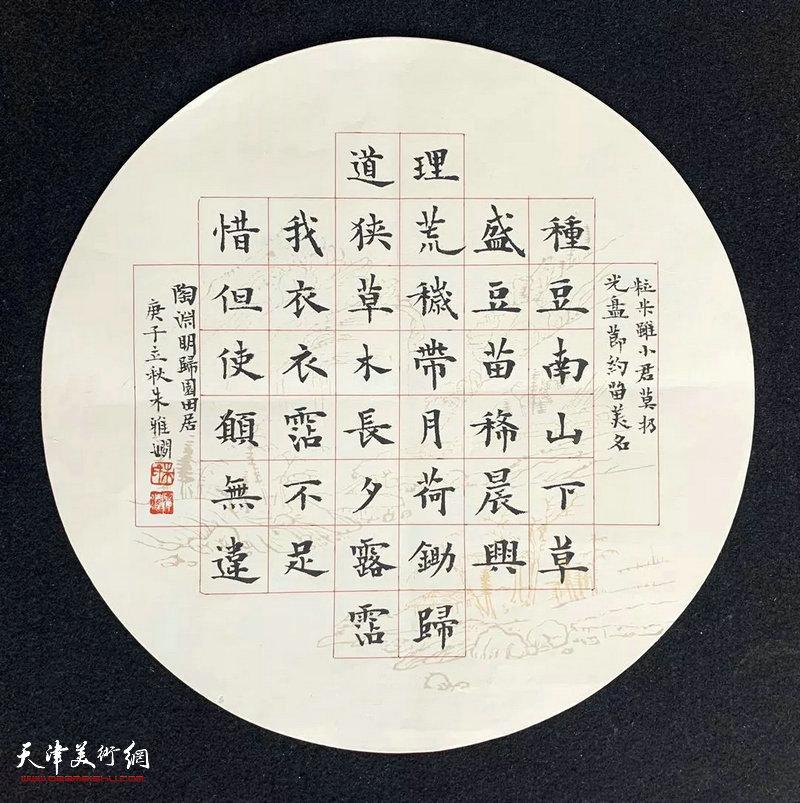 粒米雖小君莫扔
光盘節約留美名
種豆南山下草
盛豆苗稀晨興
理荒穢帶月荷鋤歸
道狭草木長夕露霑
我衣衣霑不足
惜但使願無違
陶淵明歸園田居
庚子立秋朱雅嫻
天津美術網
www.022meishu.com